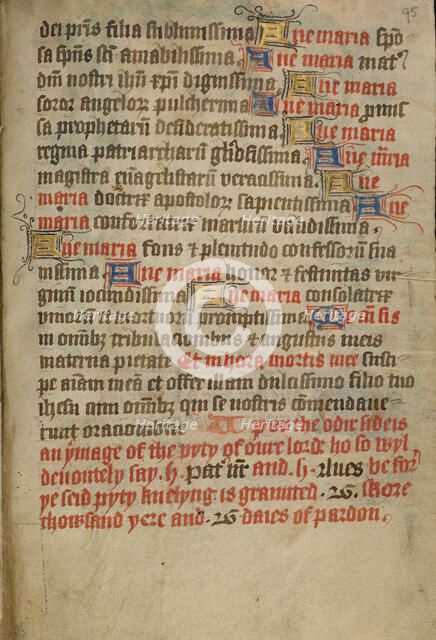 95
dei p̄ris filia sublimissima Aue maria spō
sa sp̄us sc̄i amabilissima. Aue maria mat᷑
dn̄i nostri ihū xp̄i dignissima Aue maria
soror angelor pulcherrima Aue maria p̄mis
sa prophetarū desideratissima Aue maria
regina patriarcharū gl̄osissima. Aue m̄ria
magistra euāgelistarū veracissima. Aue
maria doctrix apostolor sapientissima Aue
maria confortatrix martirū validissima.
Aue maria fons & plenitudo confessorū sua
uissima. Aue maria honor & festiuitas vir
ginū iocundissima Aue maria consolatrix
viuor & mortuor promptissima mecū sis
in om̄ibꝫ tribulacionibus & angustiis meis
materna pietate Et in hora mortis mee susci
pe aīam meā et offer illam dulcissimo filio tuo
ihesu cum om̄ibꝫ qui se nostris comendaue
runt oracionibus Apon the oder side is
an ymage of the pyty of oure lorde ho so wyl
deuontely say .h. pat nr̄ and .h. Aues be for
ye seid pyty knelyng is graunted .26. skore
thowsand yere and .26 daies of pardon.
Heritage Images